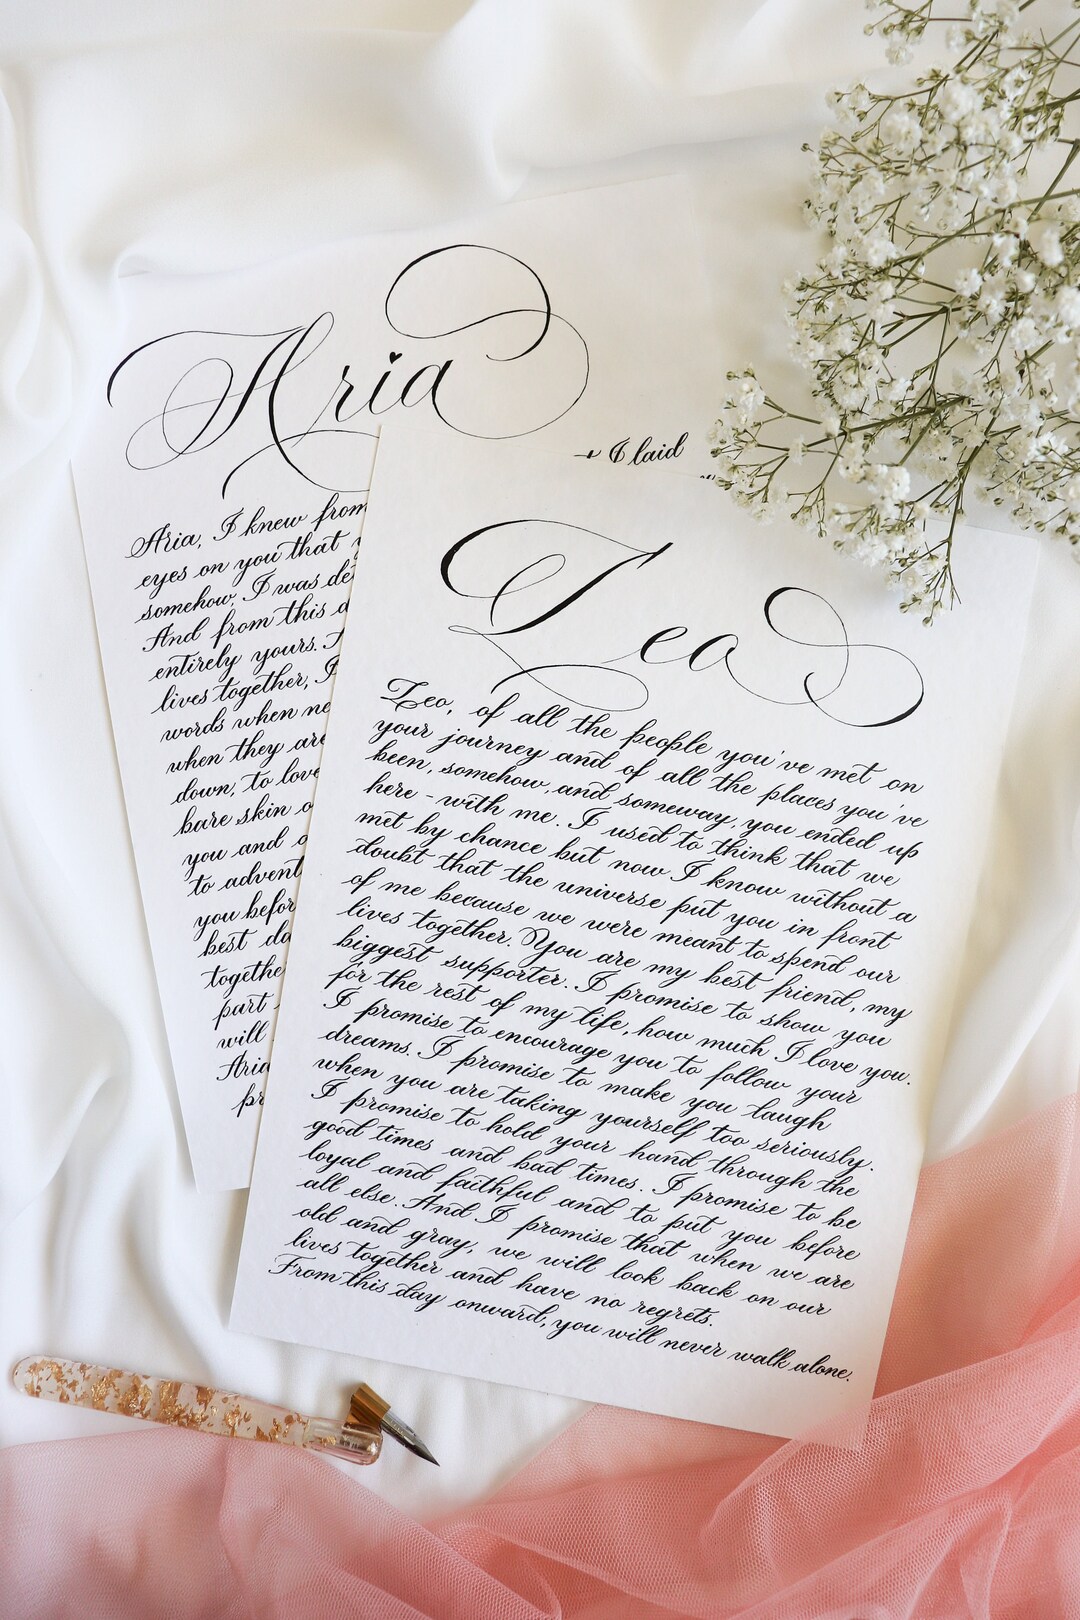 Aria
I laid
Aria, I knew from
eyes on you that
somehow, I was de
And from this d
entirely yours.
lives together, I
words when ne
when they are
down, to love
bare skin o
you and
to advent
you befor
best da
togethe
part
will
Aria
pr
Leo
Leo, of all the people you've met on
your journey and of all the places you've
been, somehow, and someway, you ended up
here - with me. I used to think that we
met by chance but now I know without a
doubt that the universe put you in front
of me because we were meant to spend our
lives together. You are my best friend, my
biggest supporter. I promise to show you
for the rest of my life, how much I love you.
I promise to encourage you to follow your
dreams. I promise to make you laugh
when you are taking yourself too seriously.
I promise to hold your hand through the
good times and bad times. I promise to be
loyal and faithful and to put you before
all else. And I promise that when we are
old and gray, we will look back on our
lives together and have no regrets.
From this day onward, you will never walk alone.